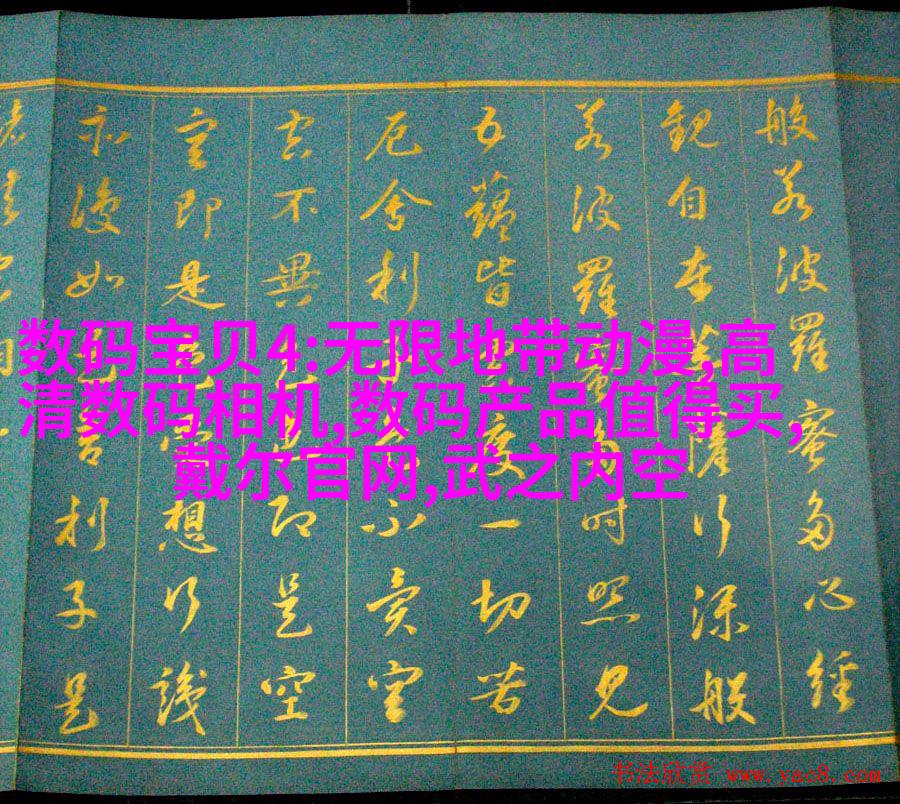 数码宝贝4:无限地带动漫,高
清数码相机,数码产品值得买,
戴尔官网,武之内空
般若波羅蜜多心經
觀自在菩薩行深般
若波羅蜜多時照見
五蘊皆空度一切苦
厄舍利子不異空
空不異色即是空
空即是受想行識
亦復如是舍利子是
书法欣赏 www.yac8.com